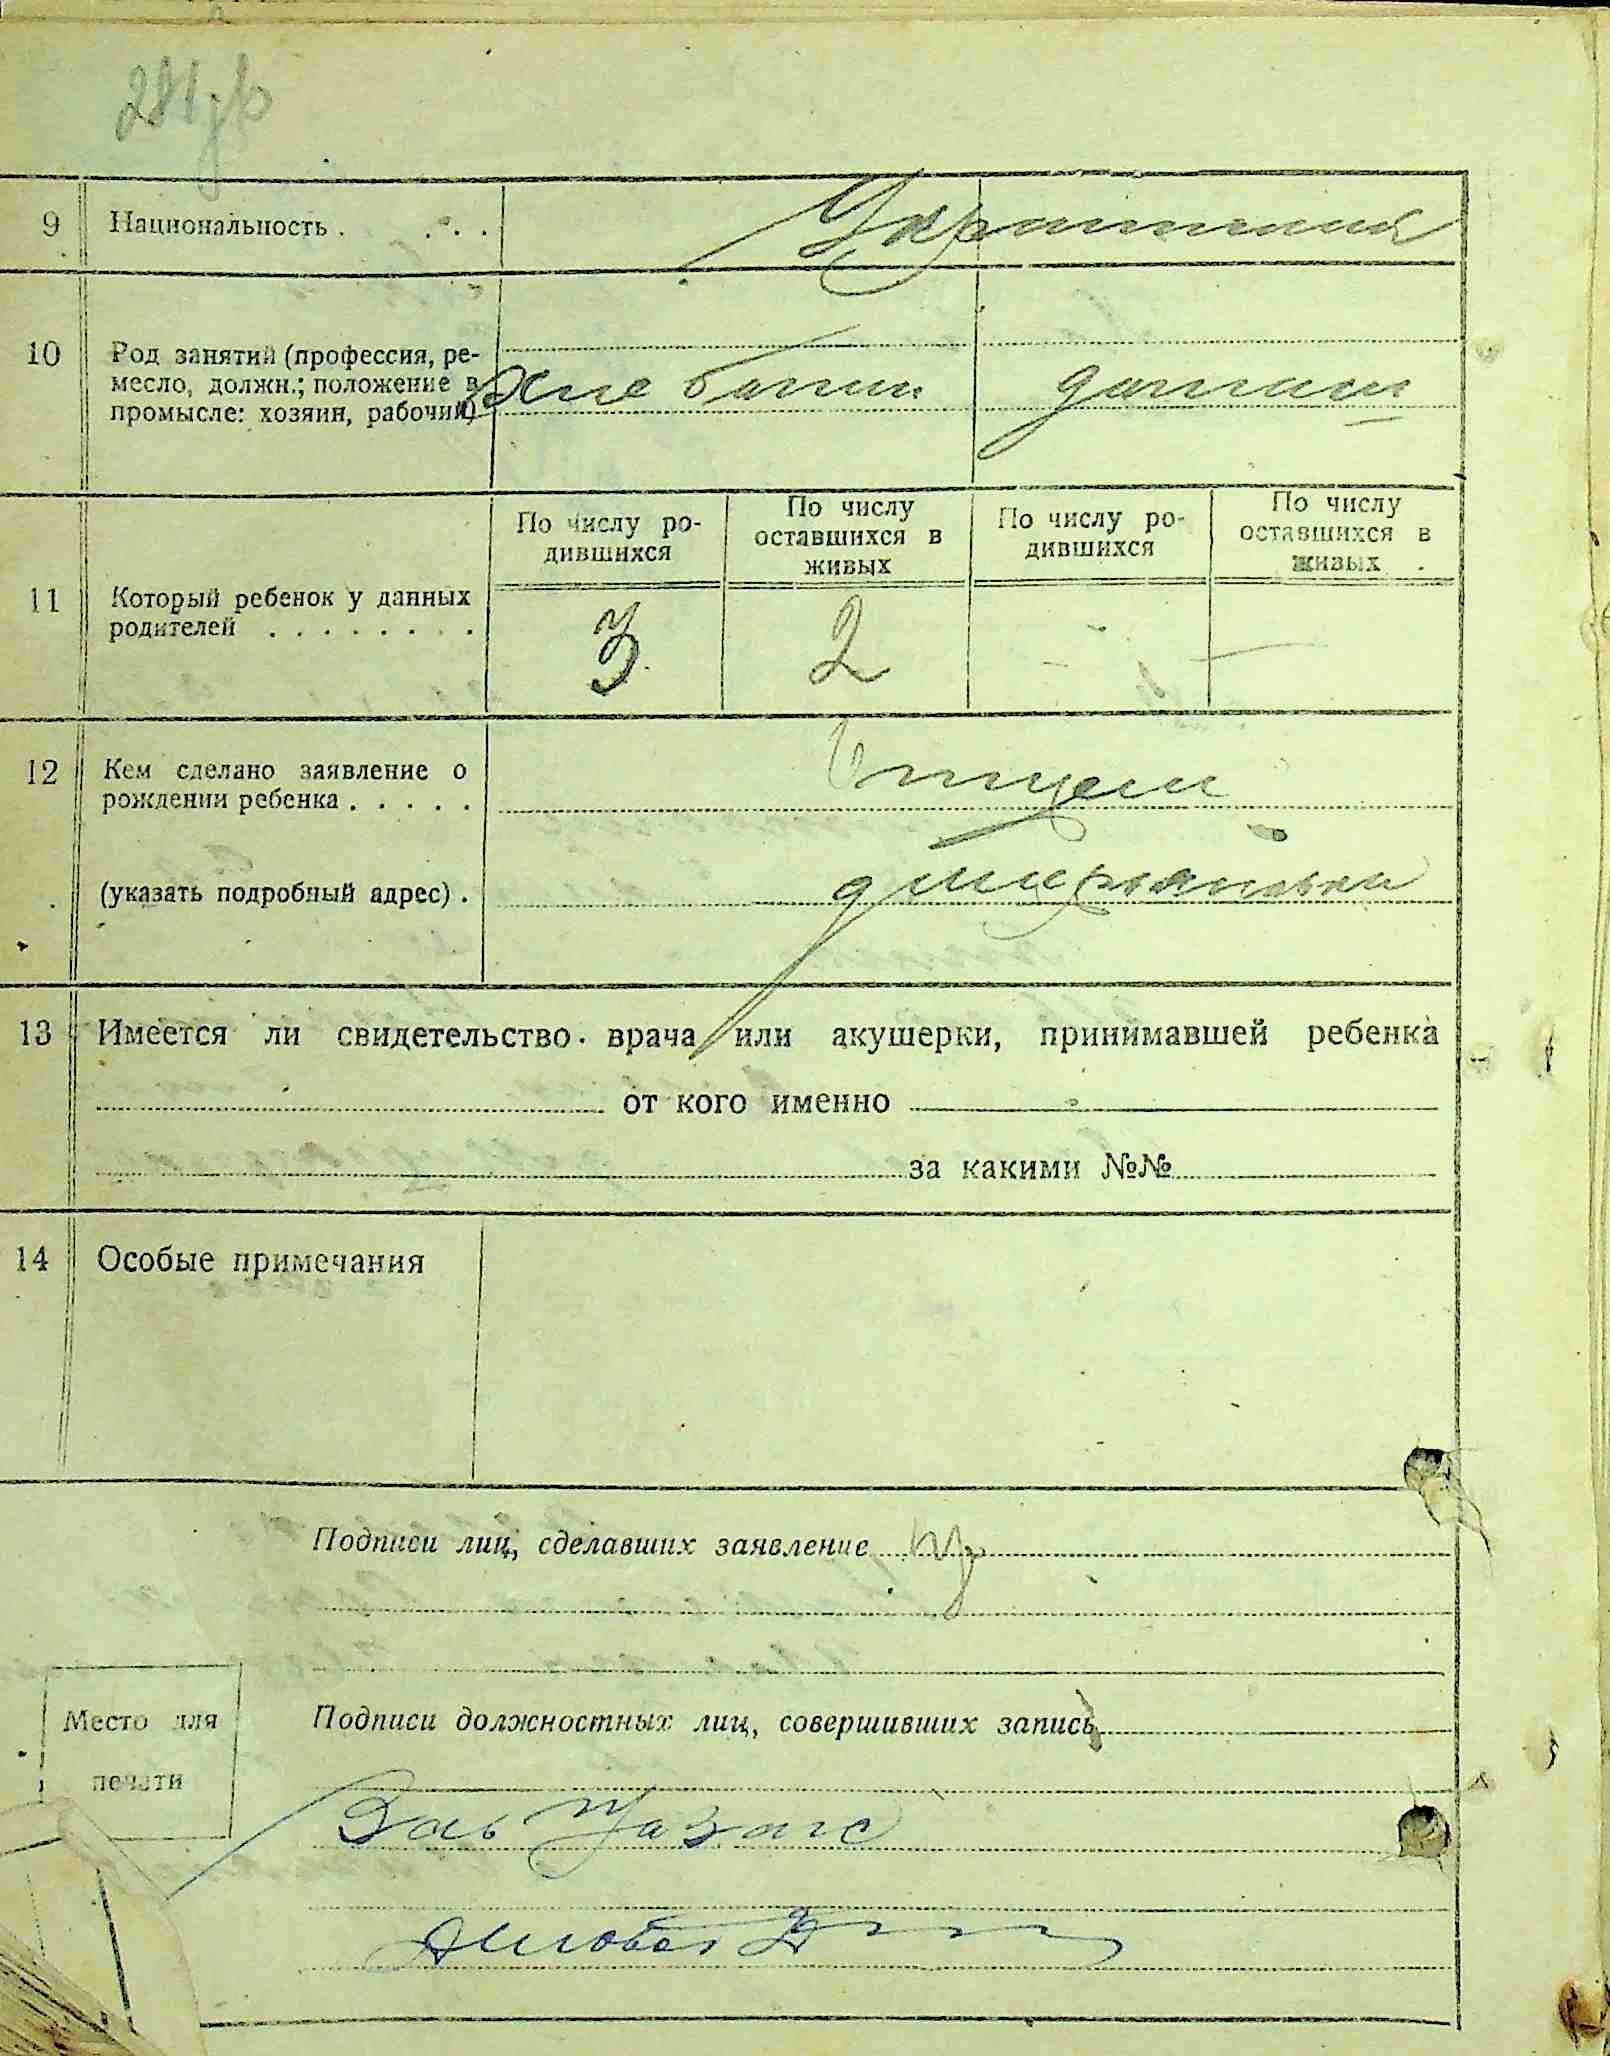 9 Национальность . . . .
10 Род занятий (профессия, ре-
месло, должн.; положение в
промысле: хозяин, рабочий)
Хлебопаш домаш
По числу ро-
дившихся
По числу
оставшихся в
живых
По числу ро-
дившихся
По числу
оставшихся в
живых
11 Который ребенок у данных
родителей . . . . . . . .
3 2 - —
12 Кем сделано заявление о
рождении ребенка . . . . .
Отцем
(указать подробный адрес) .
13 Имеется ли свидетельство врача или акушерки, принимавшей ребенка
от кого именно
за какими №№
14 Особые примечания
Подписи лиц, сделавших заявление
Место для
печати
Подписи должностных лиц, совершивших запись
Зав Загс